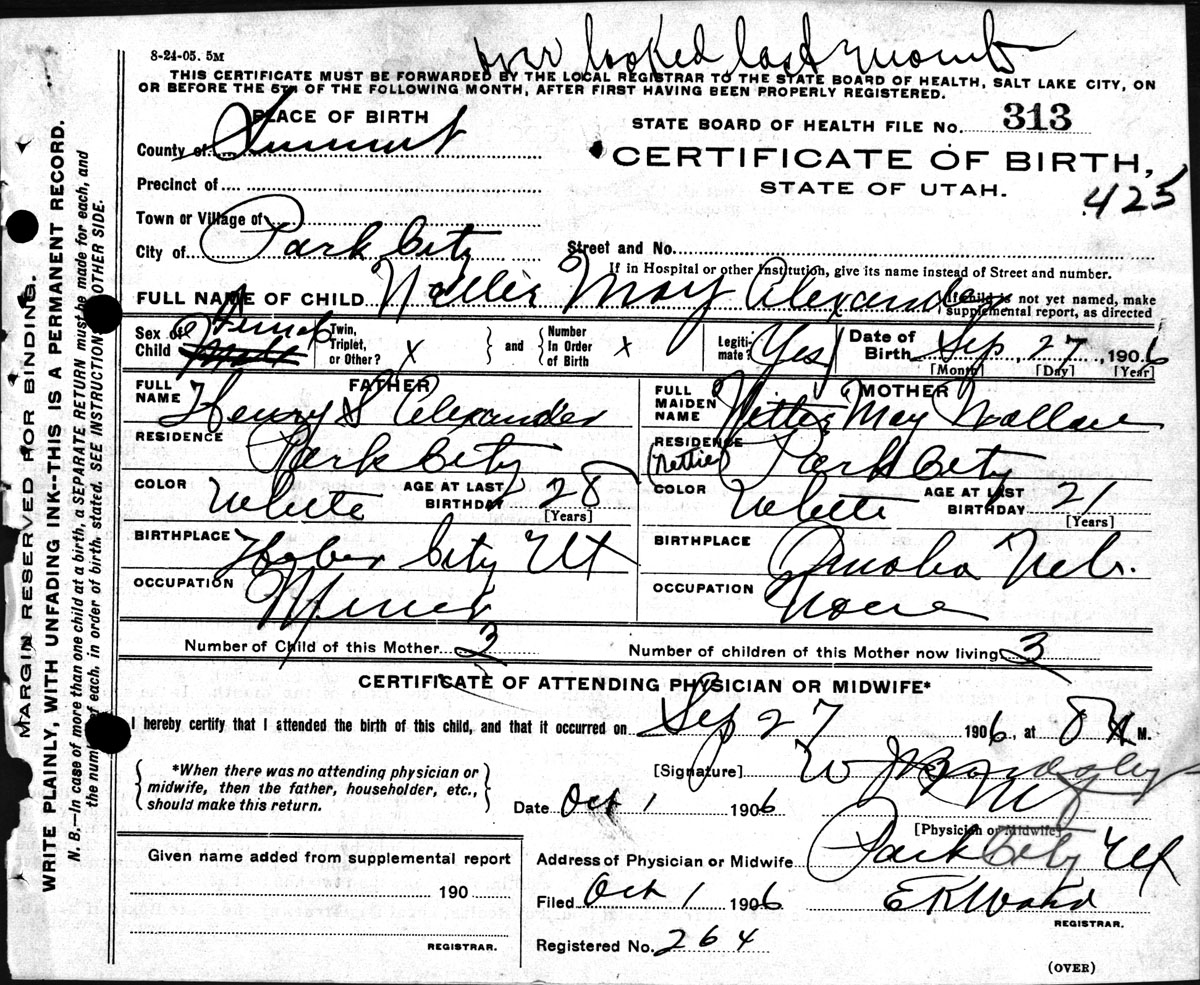 over looked last month
8-24-05. 5M
THIS CERTIFICATE MUST BE FORWARDED BY THE LOCAL REGISTRAR TO THE STATE BOARD OF HEALTH, SALT LAKE CITY, ON
OR BEFORE THE 5TH OF THE FOLLOWING MONTH, AFTER FIRST HAVING BEEN PROPERLY REGISTERED.
PLACE OF BIRTH
STATE BOARD OF HEALTH FILE No. 313
County of Summit
CERTIFICATE OF BIRTH,
STATE OF UTAH.
425
Precinct of
Town or Village of
City of Park City
Street and No.
If in Hospital or other Institution, give its name instead of Street and number.
FULL NAME OF CHILD Nellie May Alexander
If child is not yet named, make supplemental report, as directed
Sex of Child Female Male
Twin, Triplet, or Other? X and Number In Order of Birth X
Legitimate? Yes
Date of Birth Sep, 27, 1906
[Month] [Day] [Year]
FATHER
FULL NAME Henry S Alexander
MOTHER
FULL MAIDEN NAME Nettie May Wallace
RESIDENCE Park City
RESIDENCE (Nettie) Park City
COLOR White AGE AT LAST BIRTHDAY 28 [Years]
COLOR White AGE AT LAST BIRTHDAY 21 [Years]
BIRTHPLACE Heber City Ut
BIRTHPLACE Omaha Neb.
OCCUPATION Miner
OCCUPATION None
Number of Child of this Mother 3
Number of children of this Mother now living 3
CERTIFICATE OF ATTENDING PHYSICIAN OR MIDWIFE*
I hereby certify that I attended the birth of this child, and that it occurred on Sep 27 1906, at 8 A M.
*When there was no attending physician or
midwife, then the father, householder, etc.,
should make this return.
[Signature] W J
Date Oct 1 1906
[Physician or Midwife]
Given name added from supplemental report
190
REGISTRAR.
Address of Physician or Midwife Park City Ut
Filed Oct 1 1906 E K Ward
REGISTRAR.
Registered No. 264
(OVER)
MARGIN RESERVED FOR BINDING.
WRITE PLAINLY, WITH UNFADING INK--THIS IS A PERMANENT RECORD.
N. B.—In case of more than one child at a birth, a SEPARATE RETURN must be made for each, and
the number of each, in order of birth, stated. SEE INSTRUCTIONS OTHER SIDE.